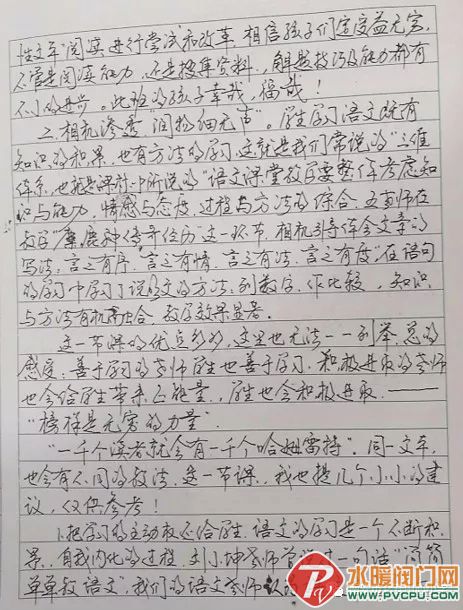 性文章"阅读进行尝试和改革,相信孩子们定受益无穷,
不管是阅读能力,还是搜集资料,解题技巧及能力都有
不小的进步。此班的孩子幸哉,福哉!
二、相机渗透"润物细无声"。学生学习语文既有
知识的积累,也有方法的学习,这就是我们常说的"三维
体系,也就是课标中所说的"语文课堂教学要整体考虑知
识与能力,情感与态度,过程与方法的综合。五
教学"麋鹿种传奇经历"这一环节,相机引导体会文章的
写法,言之有序,言之有情,言之有法,言之有度"在语句
的学习中学习了说明文的方法:列数字,作比较,知识
与方法有机融合,教学效果显著。
这一节课的优点多多,这里也无法一一列举,总的
感受:善于学习的老师学生也善于学习,积极进取的老师
也会给学生带来正能量,学生也会积极进取。——
"榜样是无穷的力量"
"一千个读者就会有一千个哈姆雷特"。同一文章,
也会有不同的教法,这一节课,我也提几个小小的建
议,仅供参考!
1.把学习的主动权还给学生。语文的学习是一个不断积
累,自我内化的过程,老师曾说过一句话"简简
单单教语文"我们的语文老师
水暖阀门网
WWW.PVCPU.COM